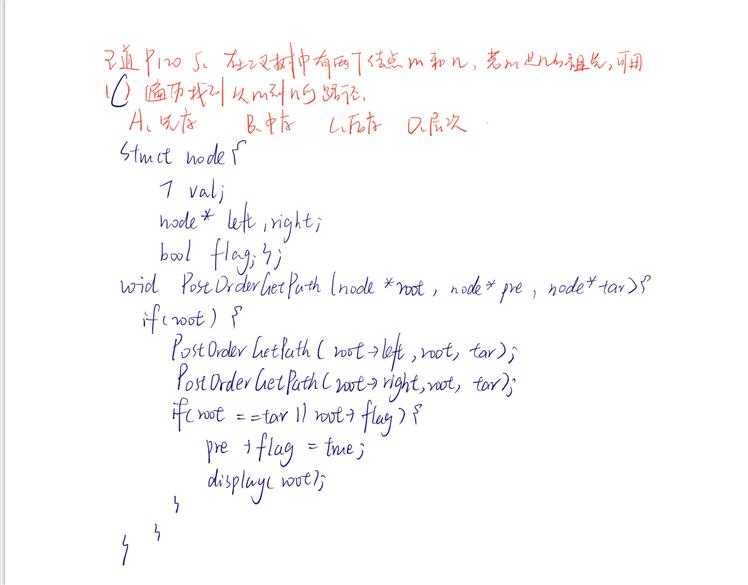 王道P120 5、在二叉树中有两个结点m和n,若m是n的祖先,可用
( ) 遍历找到从m到n的路径.
A、先序 B、中序 C、后序 D、层次
struct node {
T val;
node* left, right;
bool flag; };
void PostOrderGetPath (node *root, node* pre, node* tar) {
if(root) {
PostOrderGetPath( root->left, root, tar);
PostOrderGetPath( root->right, root, tar);
if(root == tar || root->flag) {
pre->flag = true;
display( root);
}
}
}